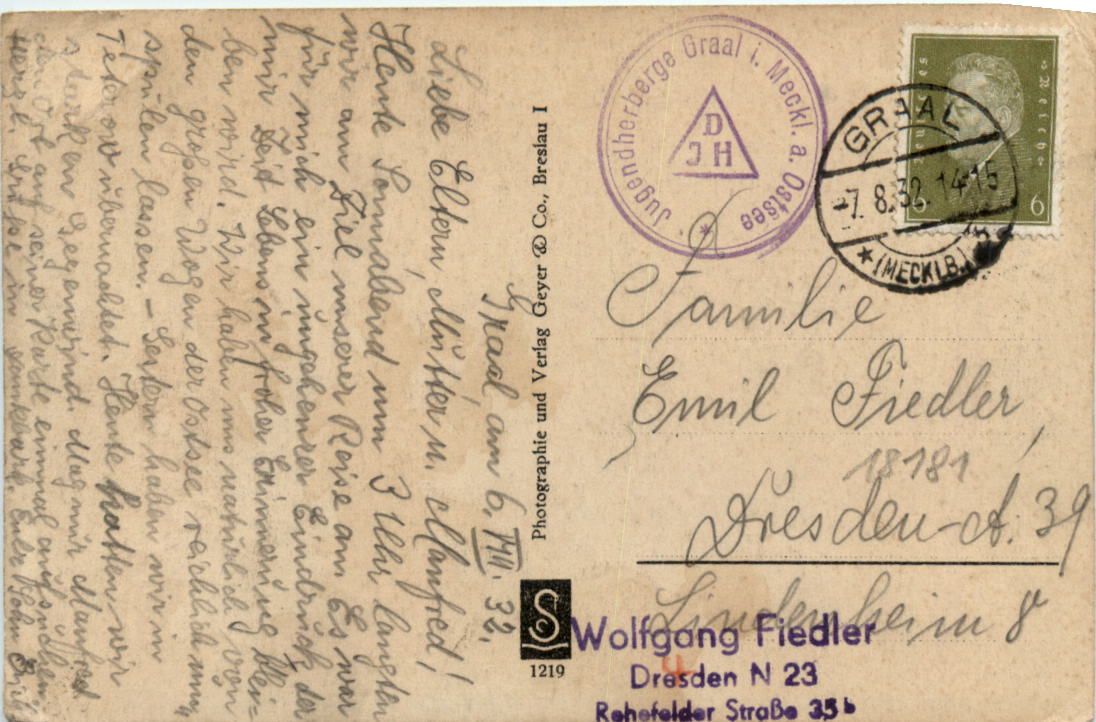 Graal am 6. VIII. 32.
Liebe Eltern, Mutter u. Manfred!
Heute Sonnabend um 3 Uhr langten
wir am Ziel unserer Reise an. Es war
für mich ein ungeheurer Eindruck der
mir Zeit Lebens in froher Erinnerung blei-
ben wird. Wir haben uns natürlich von
den großen Wogen der Ostsee reichlich um-
spülen lassen. – Gestern haben wir in
Teterow übernachtet. Heute hatten wir
starken Gegenwind. Mag nur Manfred
den Ort auf seiner Karte einmal aufsuchen.
Herzl. Grüße in Euer Sohn
Photographie und Verlag Geyer & Co., Breslau I
1219
Jugendherberge Graal i. Meckl. a. Ostsee
DJH
Deutsches Reich
6
GRAAL
-7.8.32. 14-15
*(MECKLB.)
Familie
Emil Fiedler,
18181
Dresden-A. 39
Lindenheim 8
Wolfgang Fiedler
4
Dresden N 23
Rehefelder Straße 35b